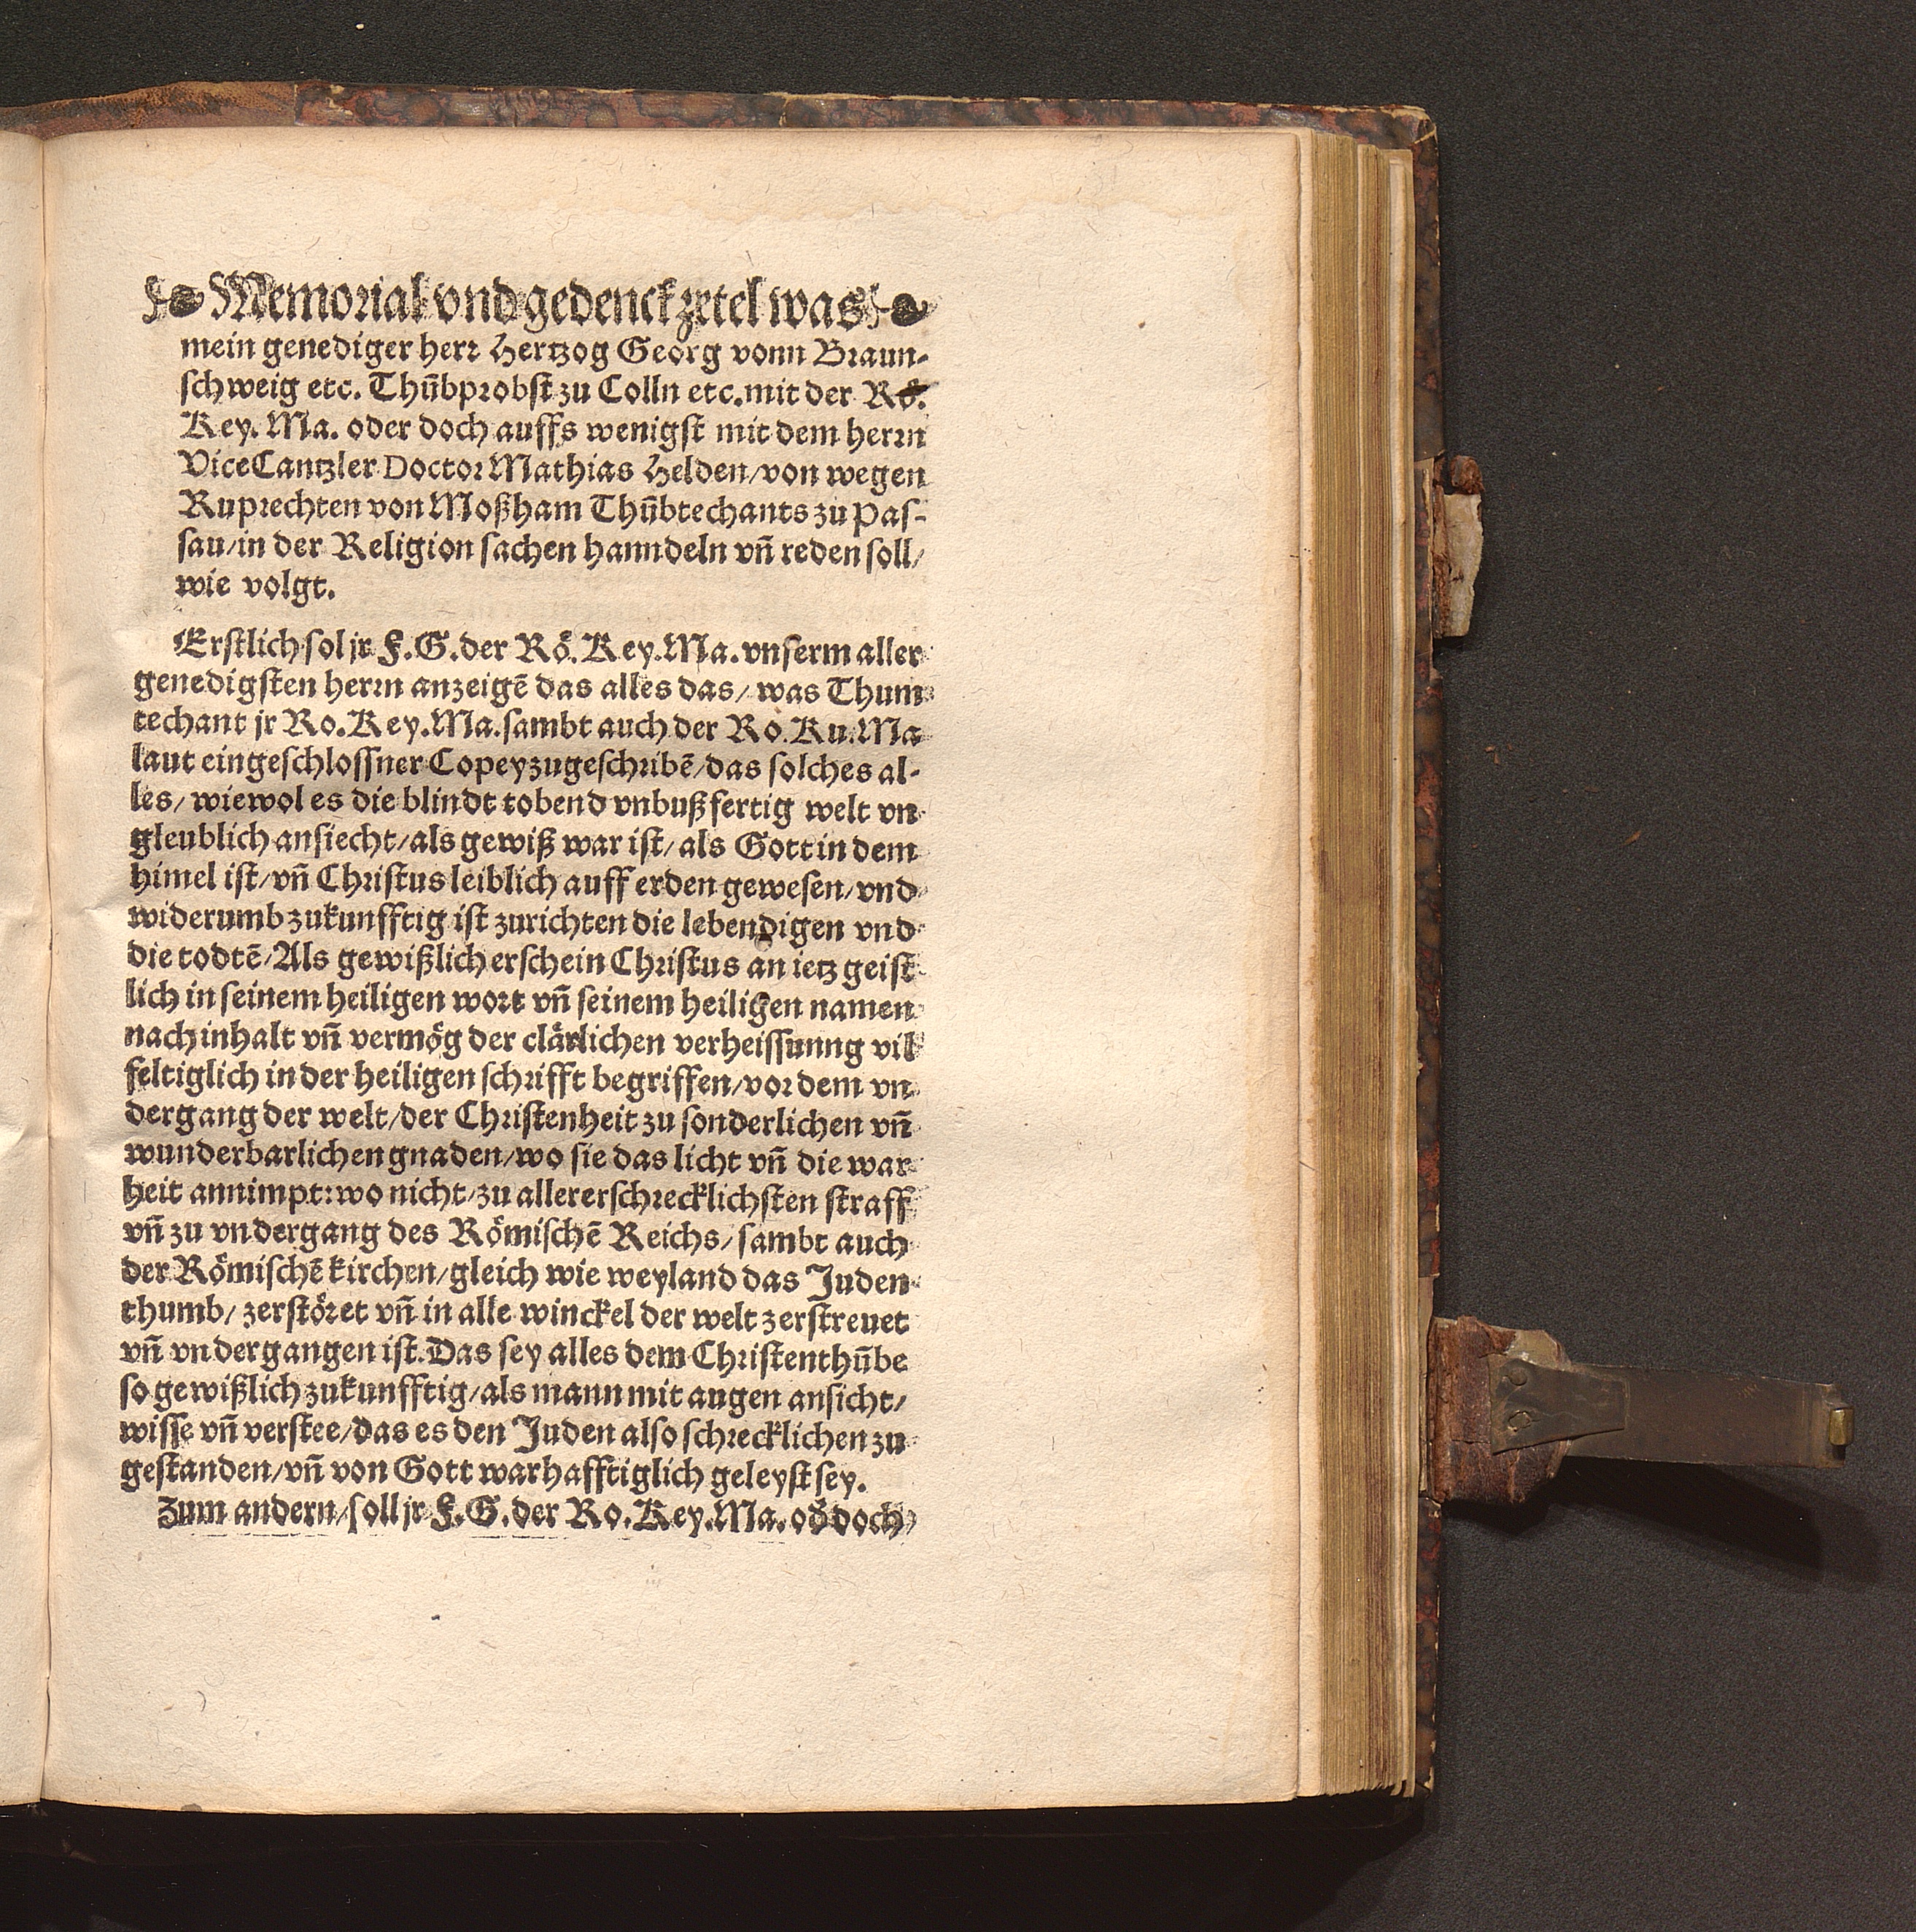 Memorial vnd gedenckzetel was
mein genediger herr Hertzog Georg vonn Braun-
schweig etc. Thūbprobst zu Colln etc. mit der Rö.
Key. Ma. oder doch auffs wenigst mit dem herrn
ViceCantzler Doctor Mathias Helden/ von wegen
Ruprechten von Moßham Thūbtechants zu Pas-
sau/ in der Religion sachen hanndeln vn̄ reden soll/
wie volgt.
Erstlich sol jr F.G. der Rö. Key. Ma. vnserm aller
genedigsten herrn anzeigē das alles das/ was Thum
techant jr Ro. Key. Ma. sambt auch der Ro. Ku. Ma
laut eingeschlossner Copey zugeschribē/ das solches al-
les/ wiewol es die blindt tobend vnbußfertig welt vn
gleublich ansiecht/ als gewiß war ist/ als Gott in dem
himel ist/ vn̄ Christus leiblich auff erden gewesen/ vnd
widerumb zukunfftig ist zurichten die lebendigen vnd
die todtē/ Als gewißlich erschein Christus an ietz geist
lich in seinem heiligen wort vn̄ seinem heiligen namen
nach inhalt vn̄ vermög der clärlichen verheissunng vil
feltiglich in der heiligen schrifft begriffen/ vor dem vn
dergang der welt/ der Christenheit zu sonderlichen vn̄
wunderbarlichen gnaden/ wo sie das licht vn̄ die war
heit annimpt: wo nicht/ zu allererschrecklichsten straff
vn̄ zu vndergang des Römischē Reichs/ sambt auch
der Römischē kirchen/ gleich wie weyland das Juden
thumb/ zerstöret vn̄ in alle winckel der welt zerstreuet
vn̄ vndergangen ist. Das sey alles dem Christenthūbe
so gewißlich zukunfftig/ als mann mit augen ansicht/
wisse vn̄ verstee/ das es den Juden also schrecklichen zu
gestanden/ vn̄ von Gott warhafftiglich geleyst sey.
Zum andern/ soll jr F.G. der Ro. Key. Ma. od̄ doch